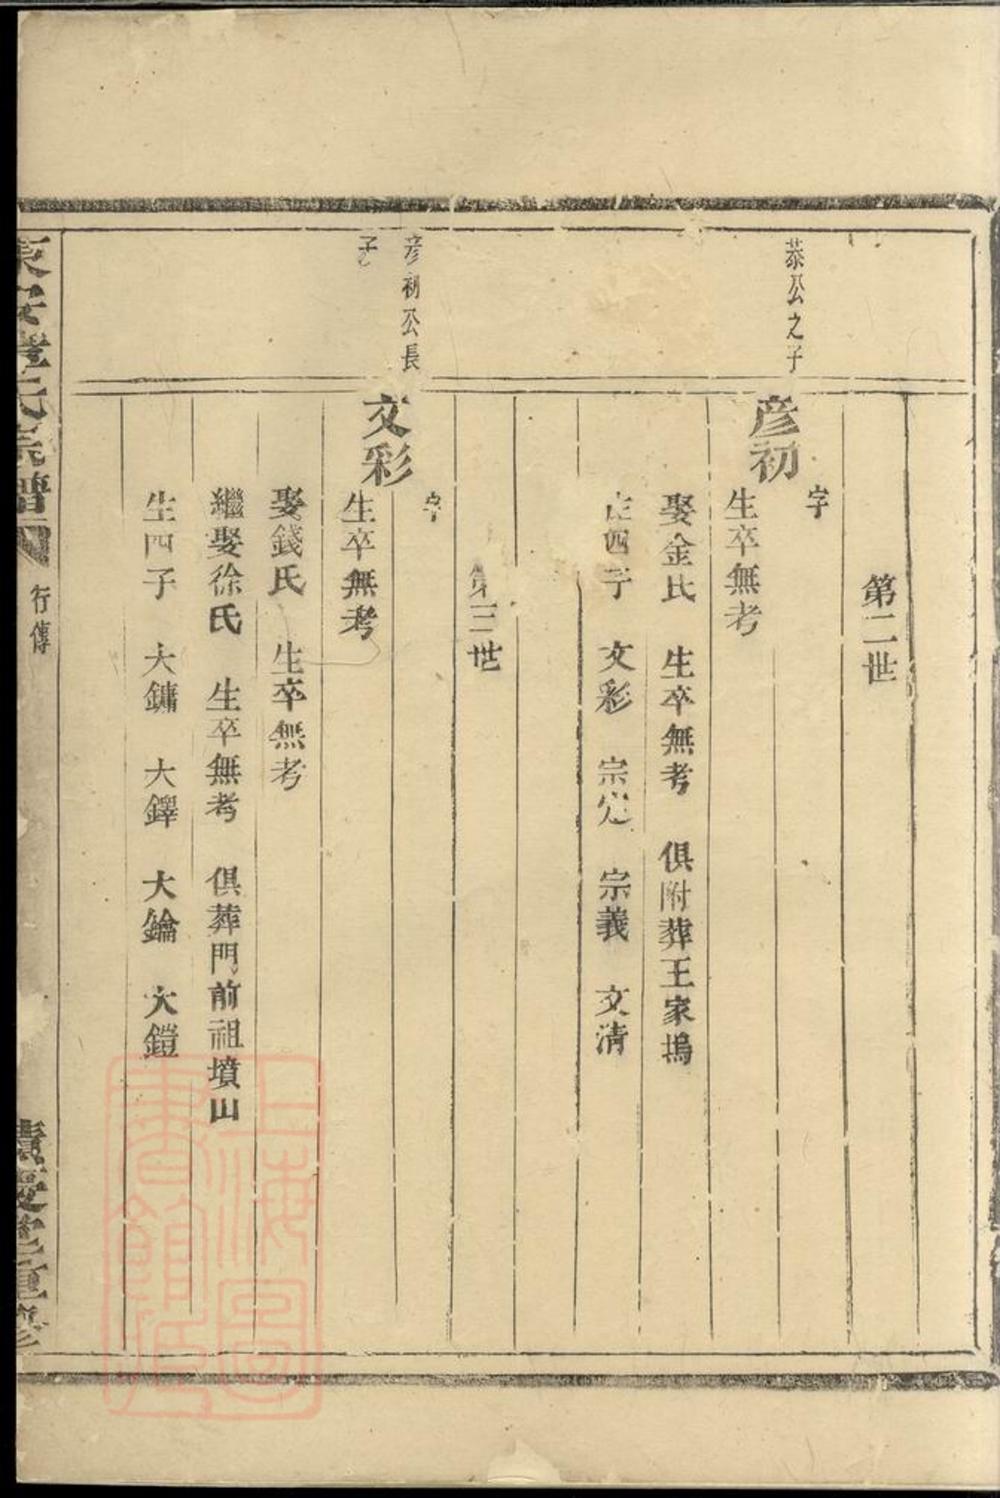 第二世
恭公之子
彦初
字
生卒無考
娶金氏　生卒無考　俱附葬王家塢
生四子　文彩　宗定　宗義　文清
第三世
彦初公長
子
文彩
字
生卒無考
娶錢氏　生卒無考
繼娶徐氏　生卒無考　俱葬門前祖墳山
生四子　大鏞　大鐸　大鑰　大鎧
宗譜
行傳
上海圖
書館藏